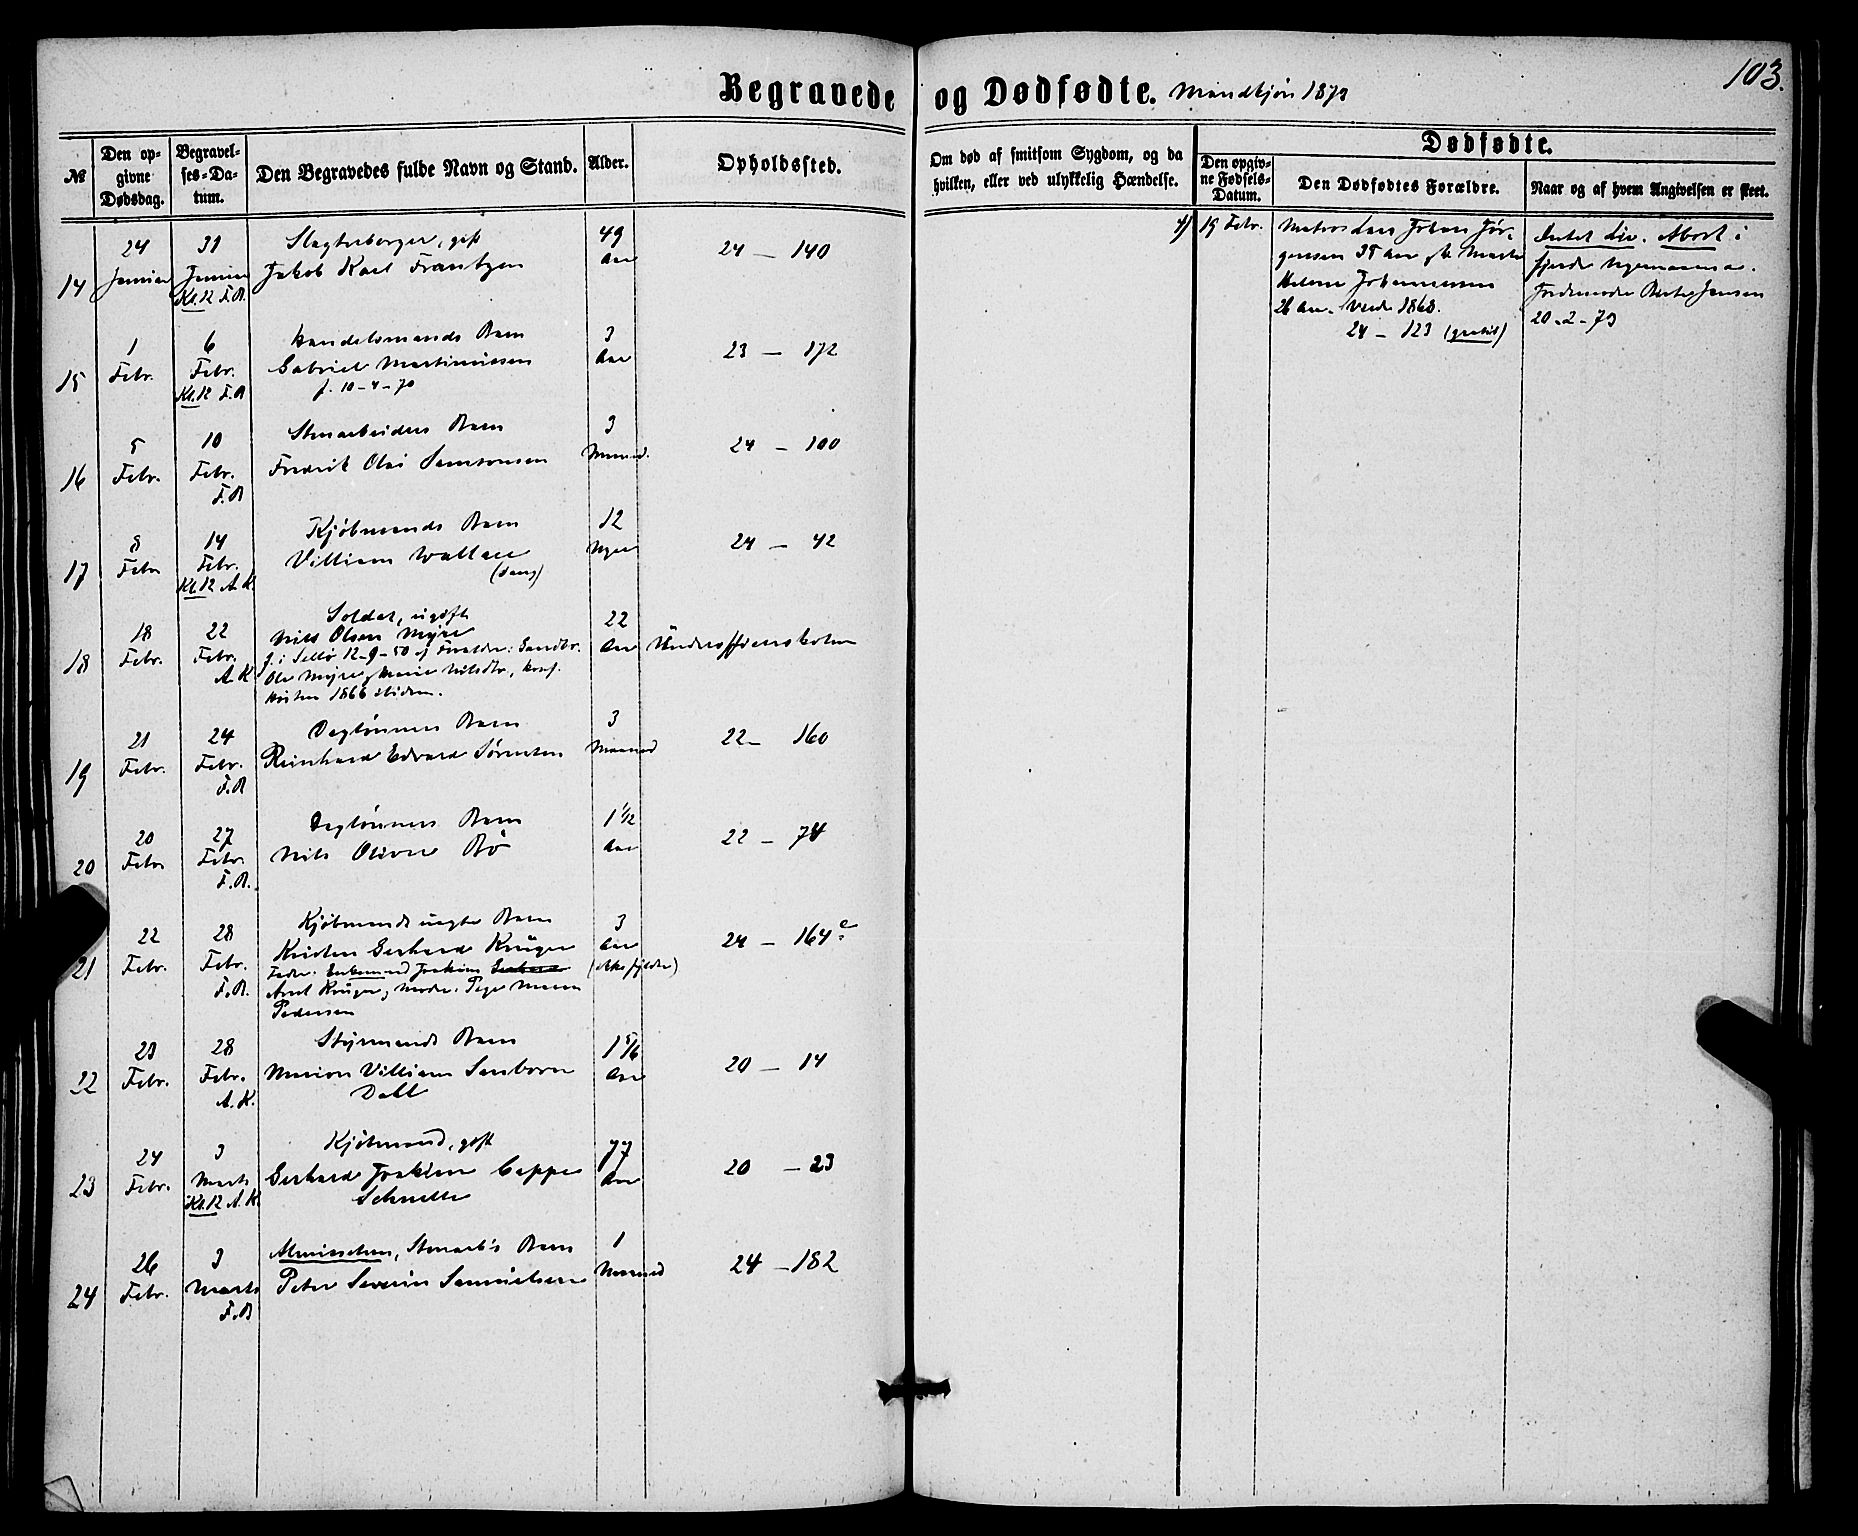 103.
Begravede og Dødfødte. Mandkjøn 1873
№
Den opgivne Dødsdag.
Begravelses-Datum.
Den Begravedes fulde Navn og Stand.
Alder.
Opholdssted.
Om død af smitsom Sygdom, og da hvilken, eller ved ulykkelig Hændelse.
Dødfødte.
Den opgivne Fødsels-Datum.
Den Dødfødtes Forældre.
Naar og af hvem Angivelsen er skeet.
14
24 Januar
31 Januar
Kl. 12 F.B.
Slagterborger, gift
Jakob Karl Frantzen
49 Aar
24 – 140
15
1 Febr.
6 Febr.
Kl. 12 F.B
Handelsmands Barn
Gabriel Martiniussen
f. 10-4-70
3 Aar
23 – 172
16
5 Febr.
10 Febr.
F.B
Stenarbeiders Barn
Fredrik Olai Samsonsen
3 Maaned.
24 – 100
17
8 Febr
14 Febr.
Kl. 12 A.K.
Kjøbmands Barn
Villiam Wallace
12 Uger
24 – 42
18
18 Febr.
22 Febr.
A.K
Soldat, ugift
Nils Olsen Myre
f. i Selbø 12-9-50 af Forældre: Gaardbr.
Ole Myre, Marie Nilsdtr, konf.
Høsten 1866 ibidem.
22 Aar
Underofficersskolen
19
21 Febr.
24 Febr.
F.B
Daglønners Barn
Reinhard Edvard Sørensen
3 Maaned
22 – 160
20
20 Febr
27 Febr.
F.B.
Daglønners Barn
Nils Oliver Bø
1 1/12 Aar
22 – 74
21
22 Febr.
28 Febr.
F.B.
Kjøbmands uægte Barn
Kristen Gerhard Krüger
Fader: Enkemand Joakim
Arnt Krüger, Moder. Pige
Pedersen
3 Aar
(ikke fyldte)
24 – 164 c
22
23 Febr.
28 Febr.
A.K.
Styrmands Barn
Marion Villiam Sanborn
Dahl
1 5/6 Aar
20 – 14
23
24 Febr.
3 Marts
Kl. 12 A.K.
Kjøbmand, gift
Gerhard Joakim Cappe
Schnelle
77 Aar
20 – 23
24
26 Febr.
3 Marts
F.B
Almisselem, Stenarb's Barn
Peter Severin Samuelsen
1 Maaned
24 – 182
4)
19 Febr.
Matros Lars Johan Jør-
gensen 35 Aar
Helene Johannessen
26 Aar. Viede 1868.
24 – 123 (gratis)
Intet Liv. Abort i
fjerde
Jordemoder Jensen
20-2-73